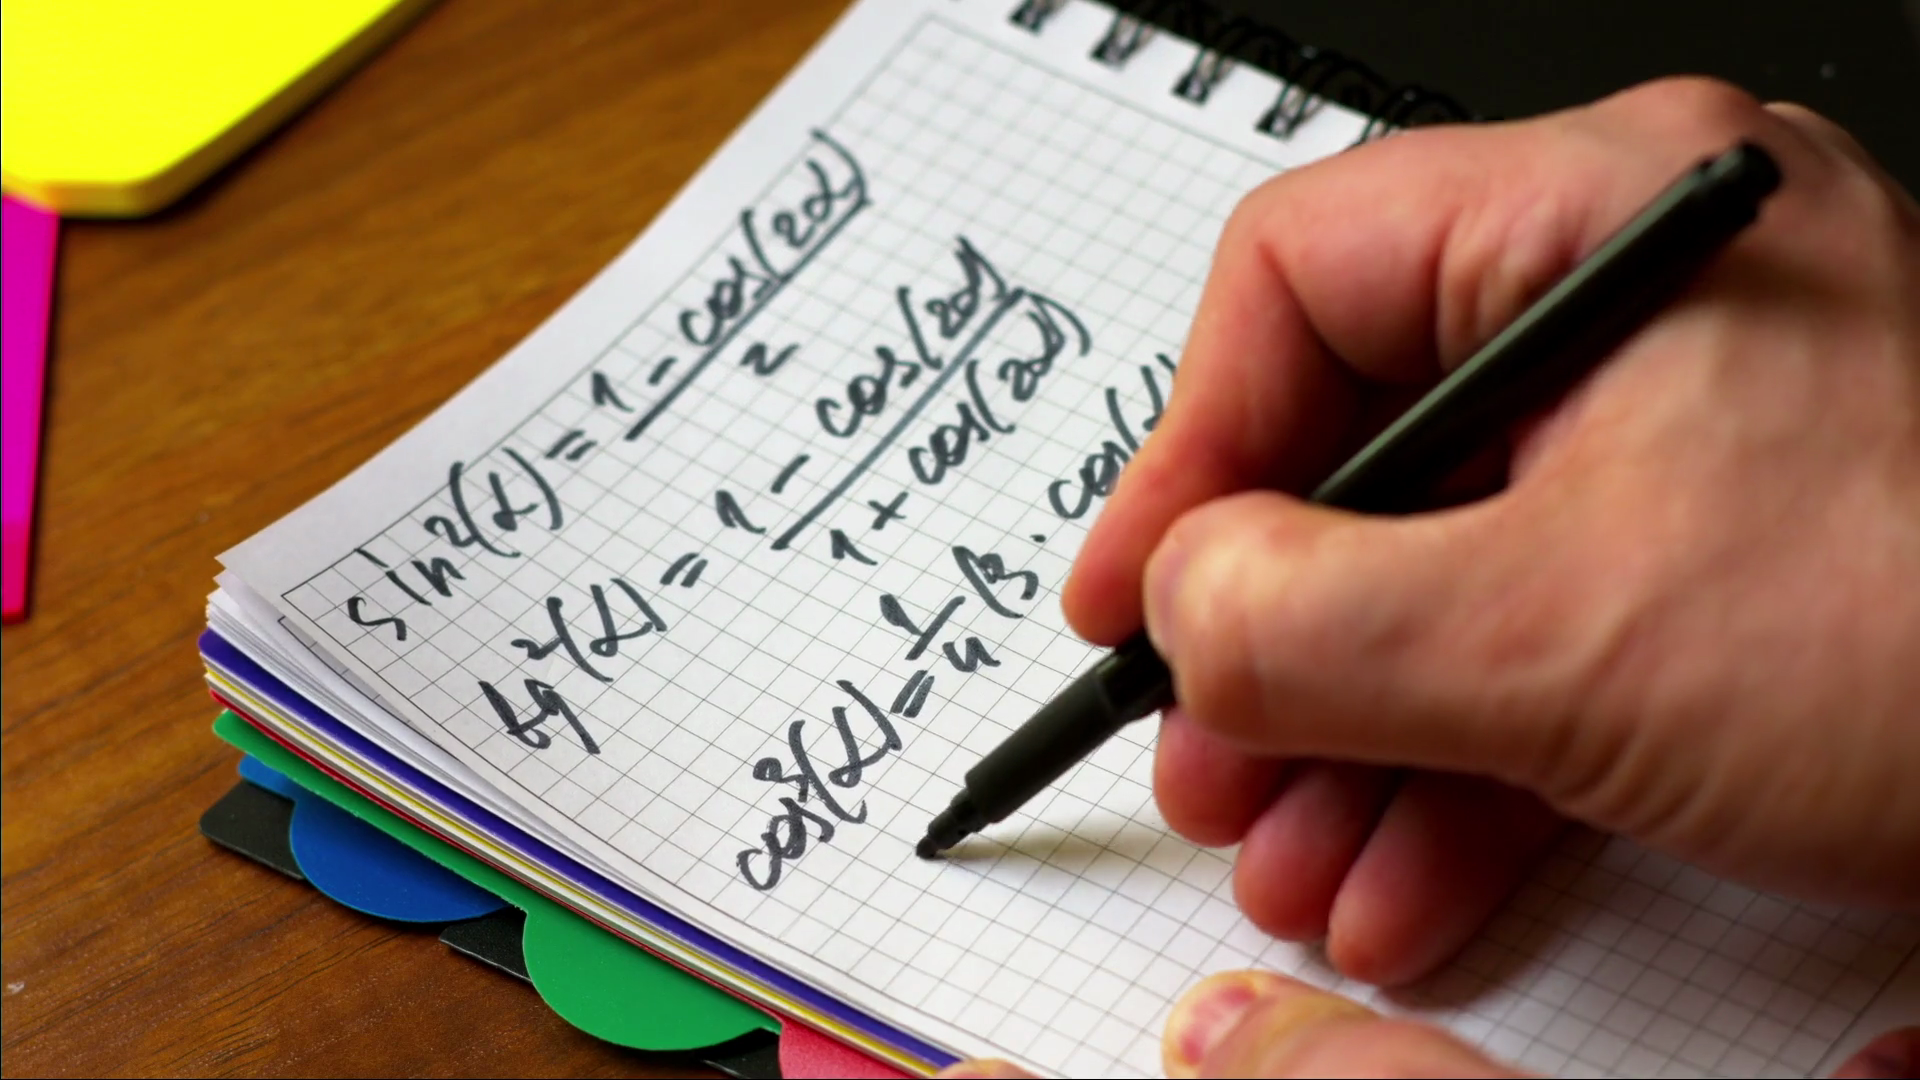 sin²(α) = (1 - cos(2α))/2
tg²(α) = (1 - cos(2α))/(1 + cos(2α))
cos³(α) = 1/4 (3 · cos(α